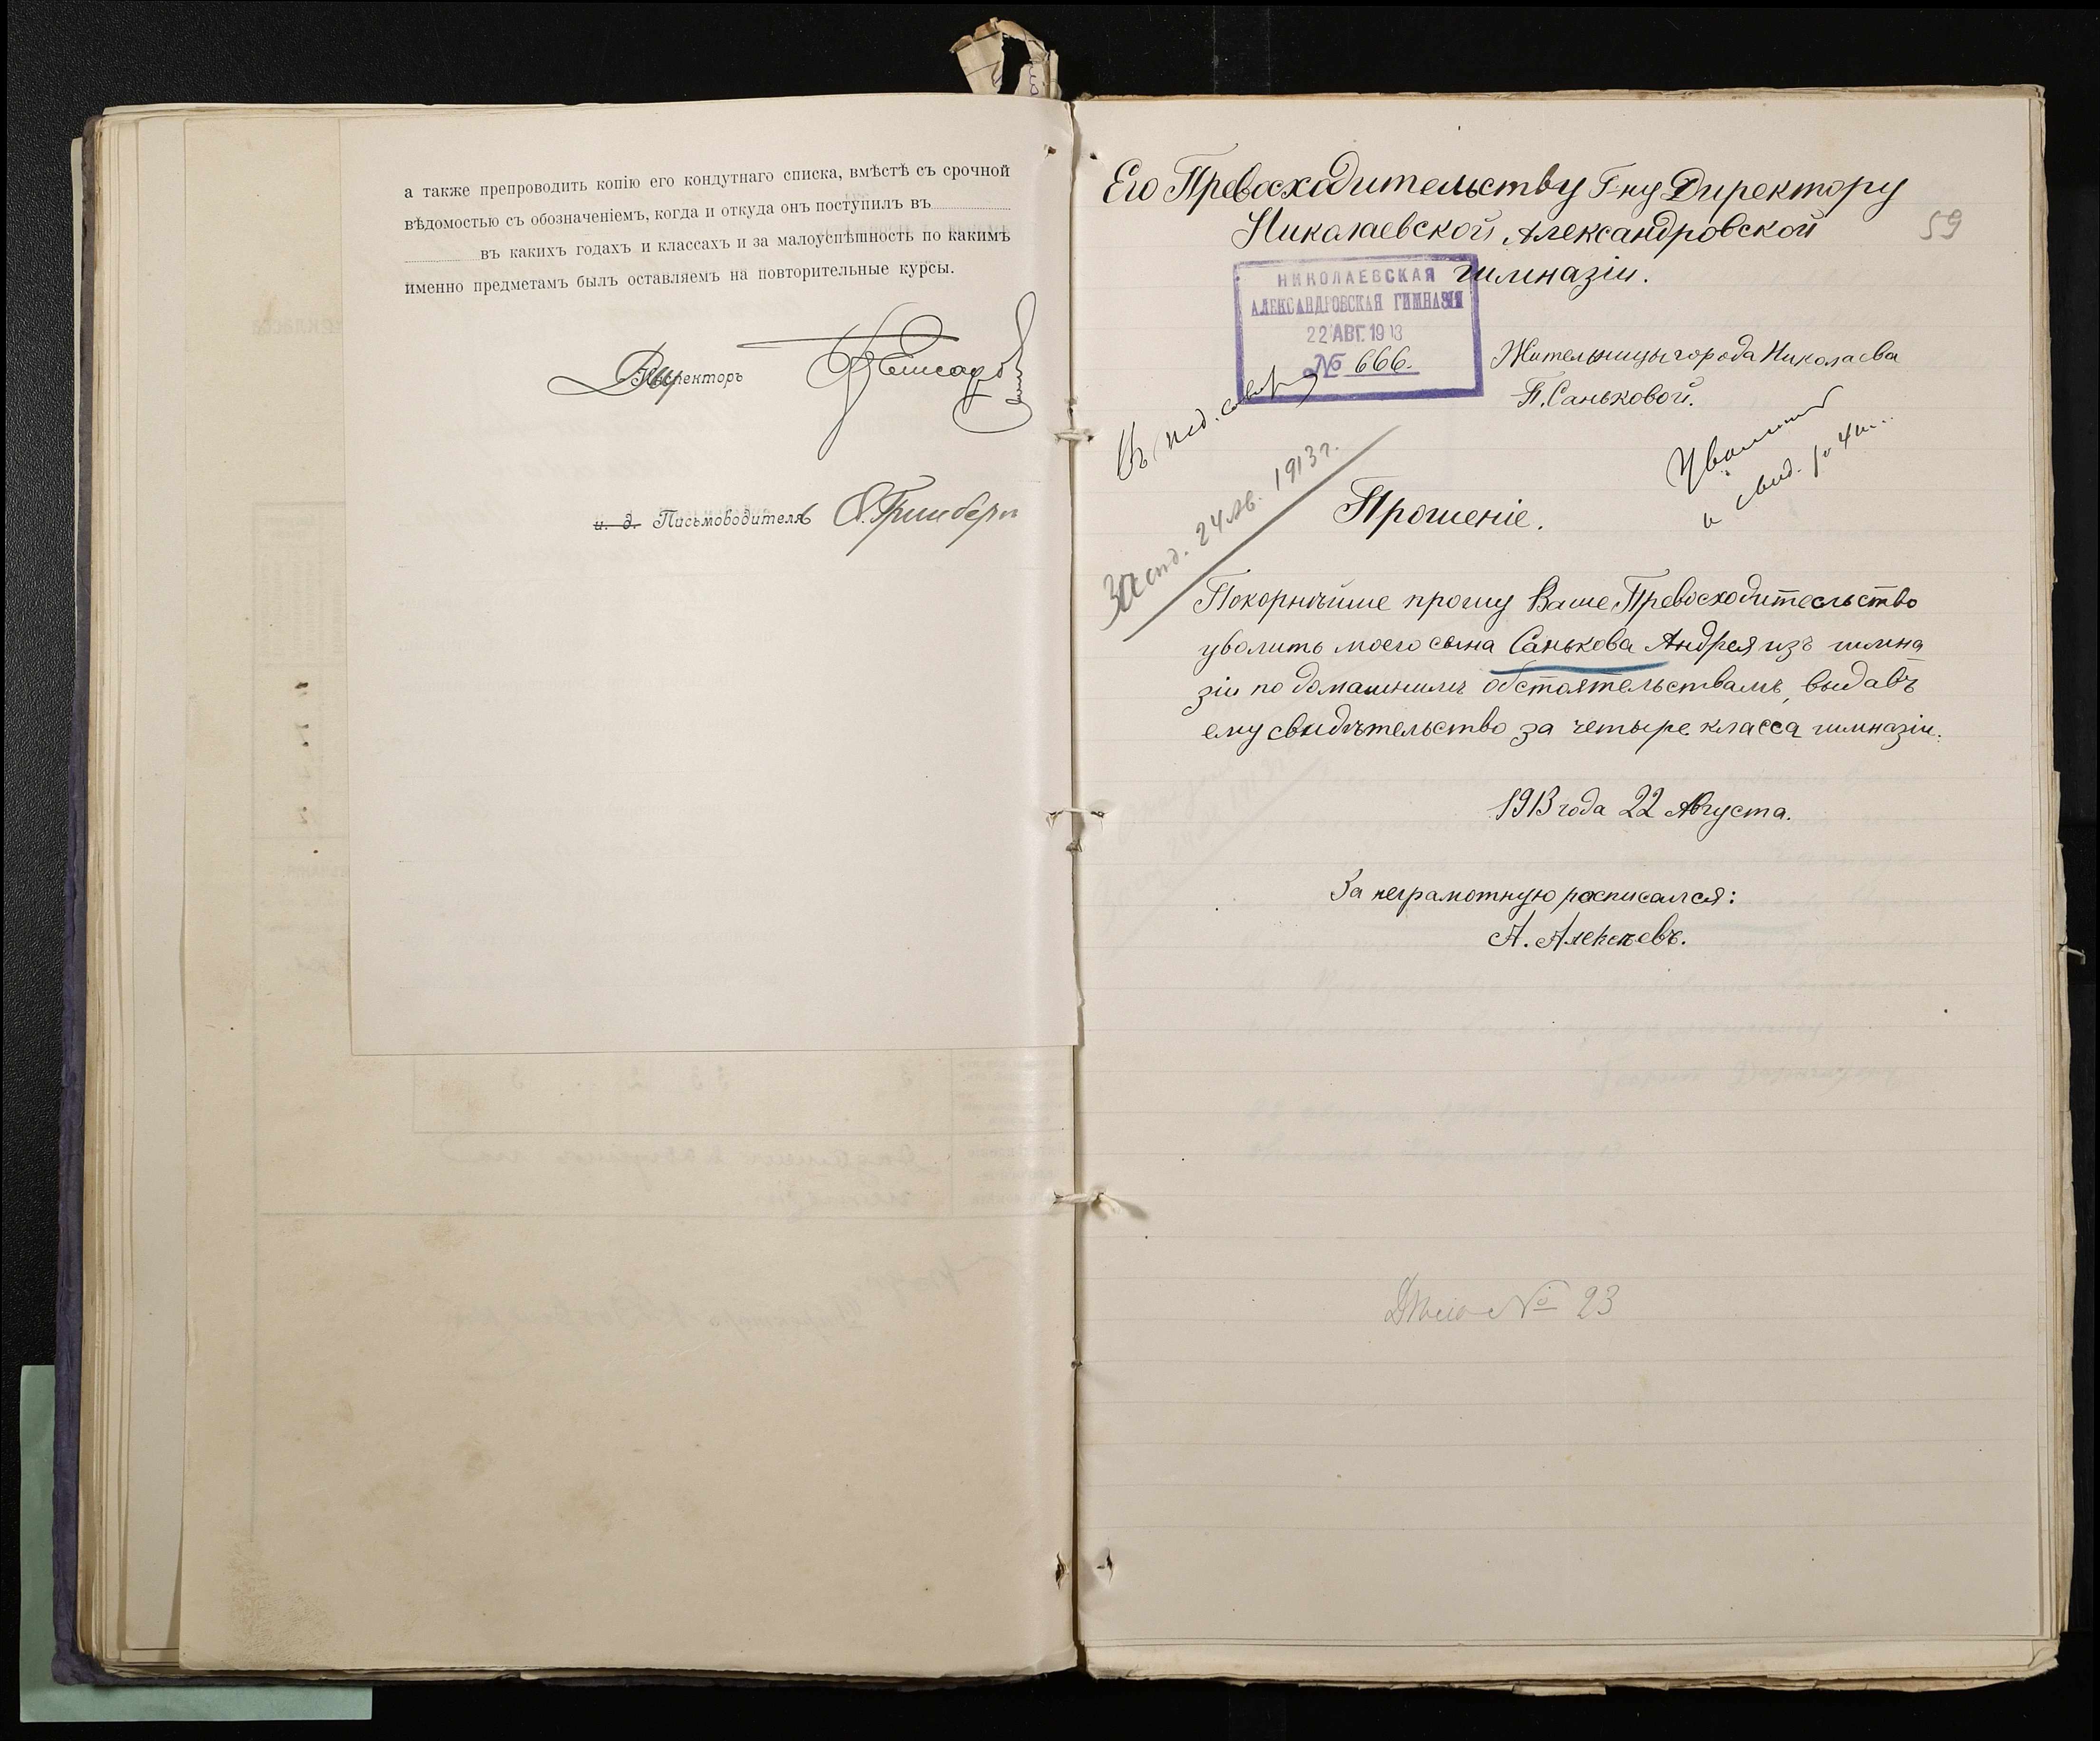 а также препроводить копію его кондутнаго списка, вмѣстѣ съ срочной
вѣдомостью съ обозначеніемъ, когда и откуда онъ поступилъ въ
въ какихъ годахъ и классахъ и за малоуспѣшность по какимъ
именно предметамъ былъ оставляемъ на повторительные курсы.
Директоръ
и. д. Письмоводителя
Его Превосходительству Г-ну Директору
Николаевской Александровской
гимназіи.
59
НИКОЛАЕВСКАЯ
АЛЕКСАНДРОВСКАЯ ГИМНАЗІЯ
22 АВГ. 1913
№ 666.
Жительницы города Николаева
П. Саньковой.
Въ пед. совѣтъ
Засѣд. 24 Ав. 1913 г.
Уволить
и свид. за 4 кл.
Прошеніе.
Покорнѣйше прошу Ваше Превосходительство
уволить моего сына Санькова Андрея изъ гимна
зіи по домашнимъ обстоятельствамъ, выдавъ
ему свидѣтельство за четыре класса гимназіи.
1913 года 22 Августа.
За неграмотную росписался:
А. Алексѣевъ.
Дѣло № 23